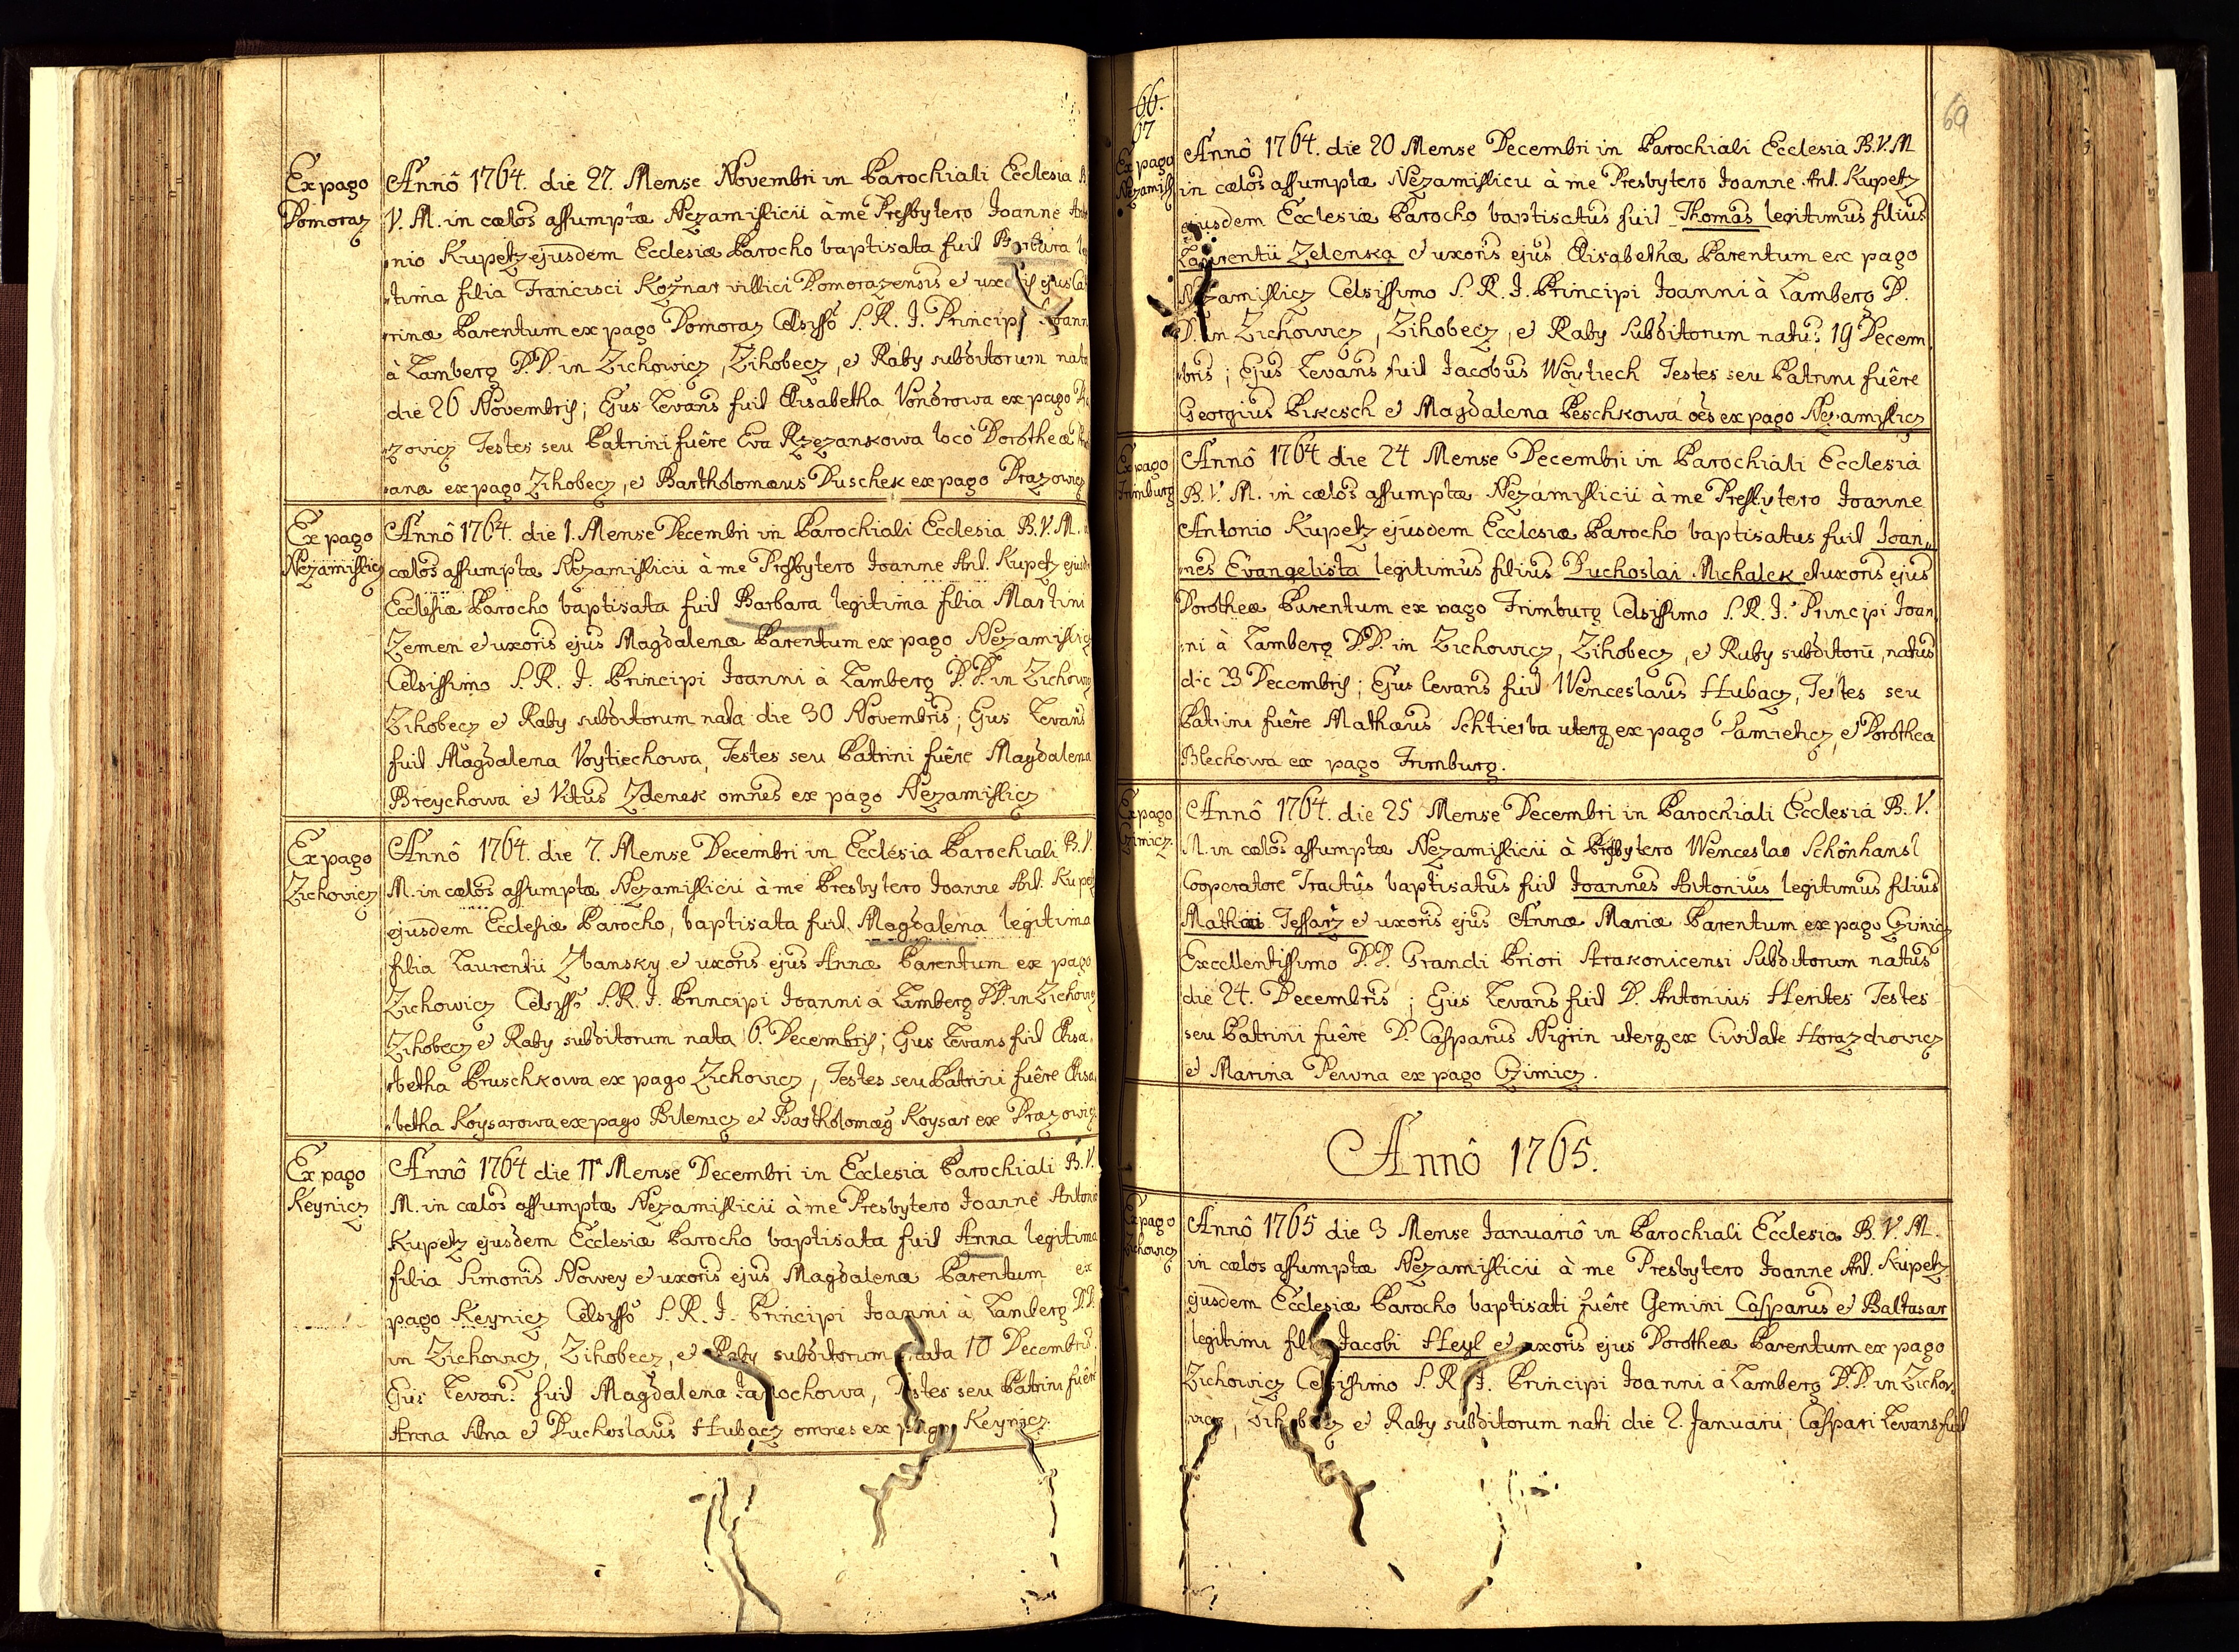 Ex pago
Domoraz
Annô 1764. die 27. Mense Novembri in Parochiali Ecclesia B.
V. M. in cœlos assumptæ Nezamislicii à me Presbytero Joanne Anto
nio Kupetz ejusdem Ecclesiæ Parocho baptisata fuit Barbara le
tima filia Francisci Koznar villici Domorazensis et uxoris ejus Ca
rinæ Parentum ex pago Domoraz Celsissô S. R. J. Principi Joann
à Lamberg D.D. in Zichowicz, Zihobecz, et Raby subditorum nata
die 26 Novembris; Ejus Levans fuit Elisabetha Vondrowa ex pago
zovicz Testes seu Patrini fuêre Eva Rzezankowa locô Dorotheæ
anæ ex pago Zihobecz, et Bartholomæus Duschek ex pago Drazowicz
Ex pago
Nezamislicz
Annô 1764. die 1. Mense Decembri in Parochiali Ecclesia B.V.M.
cœlos assumptæ Nezamislicii à me Presbytero Joanne Ant. Kupetz ejusd
Ecclesiæ Parocho baptisata fuit Barbara legitima filia Martini
Zemen et uxoris ejus Magdalenæ Parentum ex pago Nezamislicz
Celsissimo S. R. J. Principi Joanni à Lamberg D.D. in Zichowicz
Zihobecz et Raby subditorum nata die 30 Novembris; Ejus Levans
fuit Magdalena Voytiechowa, Testes seu Patrini fuêre Magdalena
Breychowa et Vitus Zdenek omnes ex pago Nezamislicz
Ex pago
Zichovicz
Annô 1764. die 7. Mense Decembri in Ecclesia Parochiali B.V.
M. in cœlos assumptæ Nezamislicii à me Presbytero Joanne Ant. Kupetz
ejusdem Ecclesiæ Parocho, baptisata fuit Magdalena legitima
filia Laurentii Zbansky et uxoris ejus Annæ Parentum ex pago
Zichowicz Celsissô S.R.J. Principi Joanni à Lamberg D.D. in Zichowicz
Zihobecz et Raby subditorum nata 6. Decembris; Ejus Levans fuit Elisa
betha Pruschkowa ex pago Zichovicz, Testes seu Patrini fuêre Elisa
betha Koysarowa ex pago Bilenicz et Bartholomæg Koysar ex Drazowicz
Ex pago
Keynicz
Annô 1764 die 11ª Mense Decembri in Ecclesia Parochiali B.V.
M. in cœlos assumptæ Nezamislicii à me Presbytero Joanne Antonio
Kupetz ejusdem Ecclesiæ Parocho baptisata fuit Anna legitima
filia Simonis Nowey et uxoris ejus Magdalenæ Parentum ex
pago Keynicz Celsissô S. R. J. Principi Joanni à Lamberg D.D.
in Zichowicz, Zihobecz, et Raby subditorum nata 10 Decembris.
Ejus Levans fuit Magdalena Jarochowa, Testes seu Patrini fuêre
Anna et Duchoslaus Hubacz omnes ex pago Keynicz.
66.
67
69
Ex pago
Nezamisl
Annô 1764. die 20 Mense Decembri in Parochiali Ecclesia B.V.M
in cœlos assumptæ Nezamislicii à me Presbytero Joanne Ant. Kupetz
ejusdem Ecclesiæ Parocho baptisatus fuit Thomas legitimus filius
Laurentii Zelenka et uxoris ejus Elisabethæ Parentum ex pago
Nezamislicz Celsissimo S. R. J. Principi Joanni à Lamberg D.
D. in Zichowicz, Zihobecz, et Raby Subditorum natus 19 Decem
bris; Ejus Levans fuit Jacobus Woytiech Testes seu Patrini fuêre
Georgius Pikesch et Magdalena Peschkowa oes ex pago Nezamislicz
Ex pago
Frimburg
Annô 1764 die 24 Mense Decembri in Parochiali Ecclesia
B. V. M. in cœlos assumptæ Nezamislicii à me Presbytero Joanne
Antonio Kupetz ejusdem Ecclesiæ Parocho baptisatus fuit Joan„
nes Evangelista legitimus filius Duchoslai Michalek et uxoris ejus
Dorotheæ Parentum ex pago Frimburg Celsissimo S. R. J. Principi Joan
ni à Lamberg D.D. in Zichowicz, Zihobecz, et Raby subditorũ, natus
die 23 Decembris; Ejus levans fuit Wenceslaus Hubacz, Testes seu
Patrini fuêre Mathæus Schtierba uterq ex pago Damieticz, et Dorothea
Blechowa ex pago Frimburg.
Ex pago
Czimicz
Annô 1764. die 25 Mense Decembri in Parochiali Ecclesia B. V.
M. in cœlos assumptæ Nezamislicii à Presbytero Wenceslao Schönhansl
Cooperatore Tractûs baptisatus fuit Joannes Antonius legitimus filius
Mathiæ Tessarz et uxoris ejus Annæ Mariæ Parentum ex pago Czimicz
Excellentissimo D.D. Grandi Priori Strakonicensi Subditorum natus
die 24. Decembris; Ejus Levans fuit D. Antonius Herites Testes
seu Patrini fuêre D. Casparus Nigrin uterq ex Civitate Horazdiovicz
et Marina Pewna ex pago Czimicz.
Annô 1765.
Ex pago
Zichowicz
Annô 1765 die 3 Mense Januariô in Parochiali Ecclesia B. V. M.
in cœlos assumptæ Nezamislicii à me Presbytero Joanne Ant. Kupetz
ejusdem Ecclesiæ Parocho baptisati fuêre Gemini Casparus et Baltasar
legitimi filii Jacobi Heyl et uxoris ejus Dorotheæ Parentum ex pago
Zichowicz Celsissimo S. R. J. Principi Joanni à Lamberg D.D. in Zicho
vicz, Zihobecz et Raby subditorum nati die 2. Januarii; Caspari Levans fuit